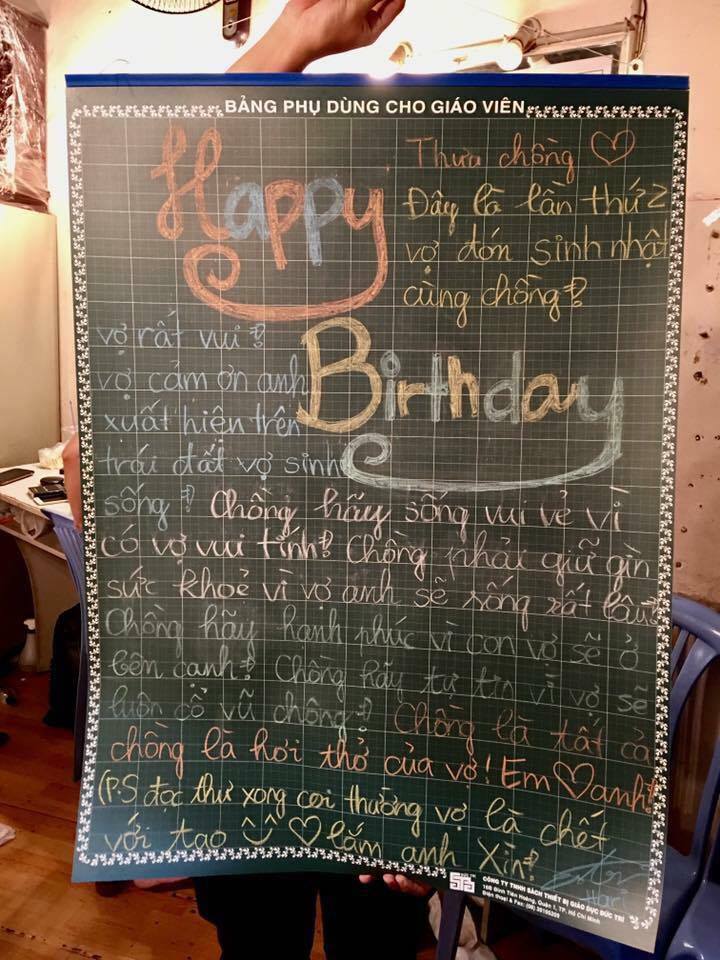 BẢNG PHỤ DÙNG CHO GIÁO VIÊN
Happy
Birthday
Thưa chồng ♡
Đây là lần thứ 2
vợ đón sinh nhật
cùng chồng!
vợ rất vui!
vợ cảm ơn anh
xuất hiện trên
trái đất vợ sinh
sống! Chồng hãy sống vui vẻ vì
có vợ vui tính! Chồng phải giữ gìn
sức khoẻ vì vợ anh sẽ xống rất lâu!
Chồng hãy hạnh phúc vì con vợ sẽ ở
bên cạnh! Chồng hãy tự tin vì vợ sẽ
luôn cổ vũ chồng! Chồng là tất cả
chồng là hơi thở của vợ! Em ♡ anh!
(P.S đọc thư xong coi thường vợ là chết
với tao ♡ lắm anh Xìn!
Hari
CÔNG TY TNHH SÁCH THIẾT BỊ GIÁO DỤC ĐỨC TRÍ
16B Đinh Tiên Hoàng, Quận 1, TP. Hồ Chí Minh